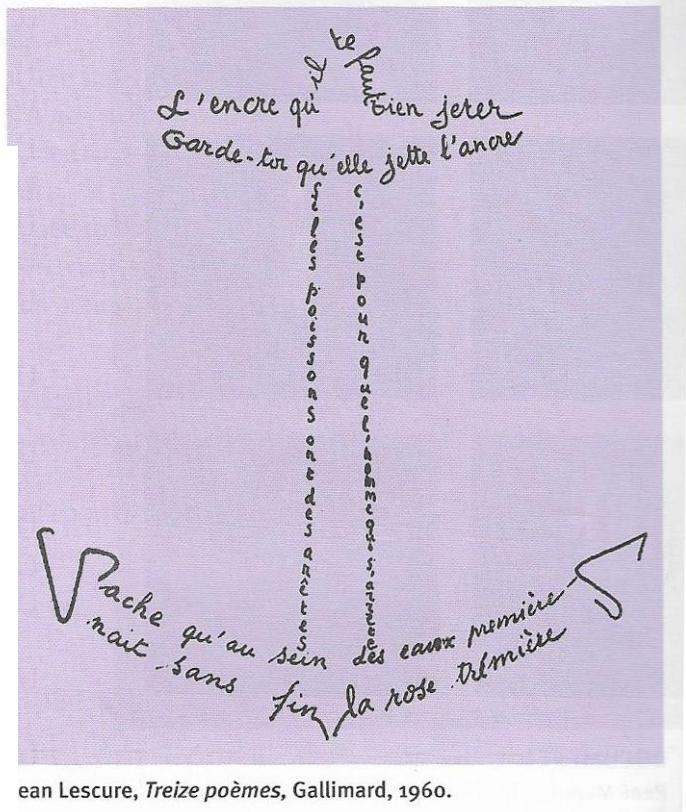 L'encre qu'il te faut bien jeter
Garde-toi qu'elle jette l'ancre
si les poissons ont des arêtes
c'est pour que l'homme qui s'arrête
Sache qu'au sein des eaux premières
nait sans fin la rose trémière
ean Lescure, Treize poèmes, Gallimard, 1960.